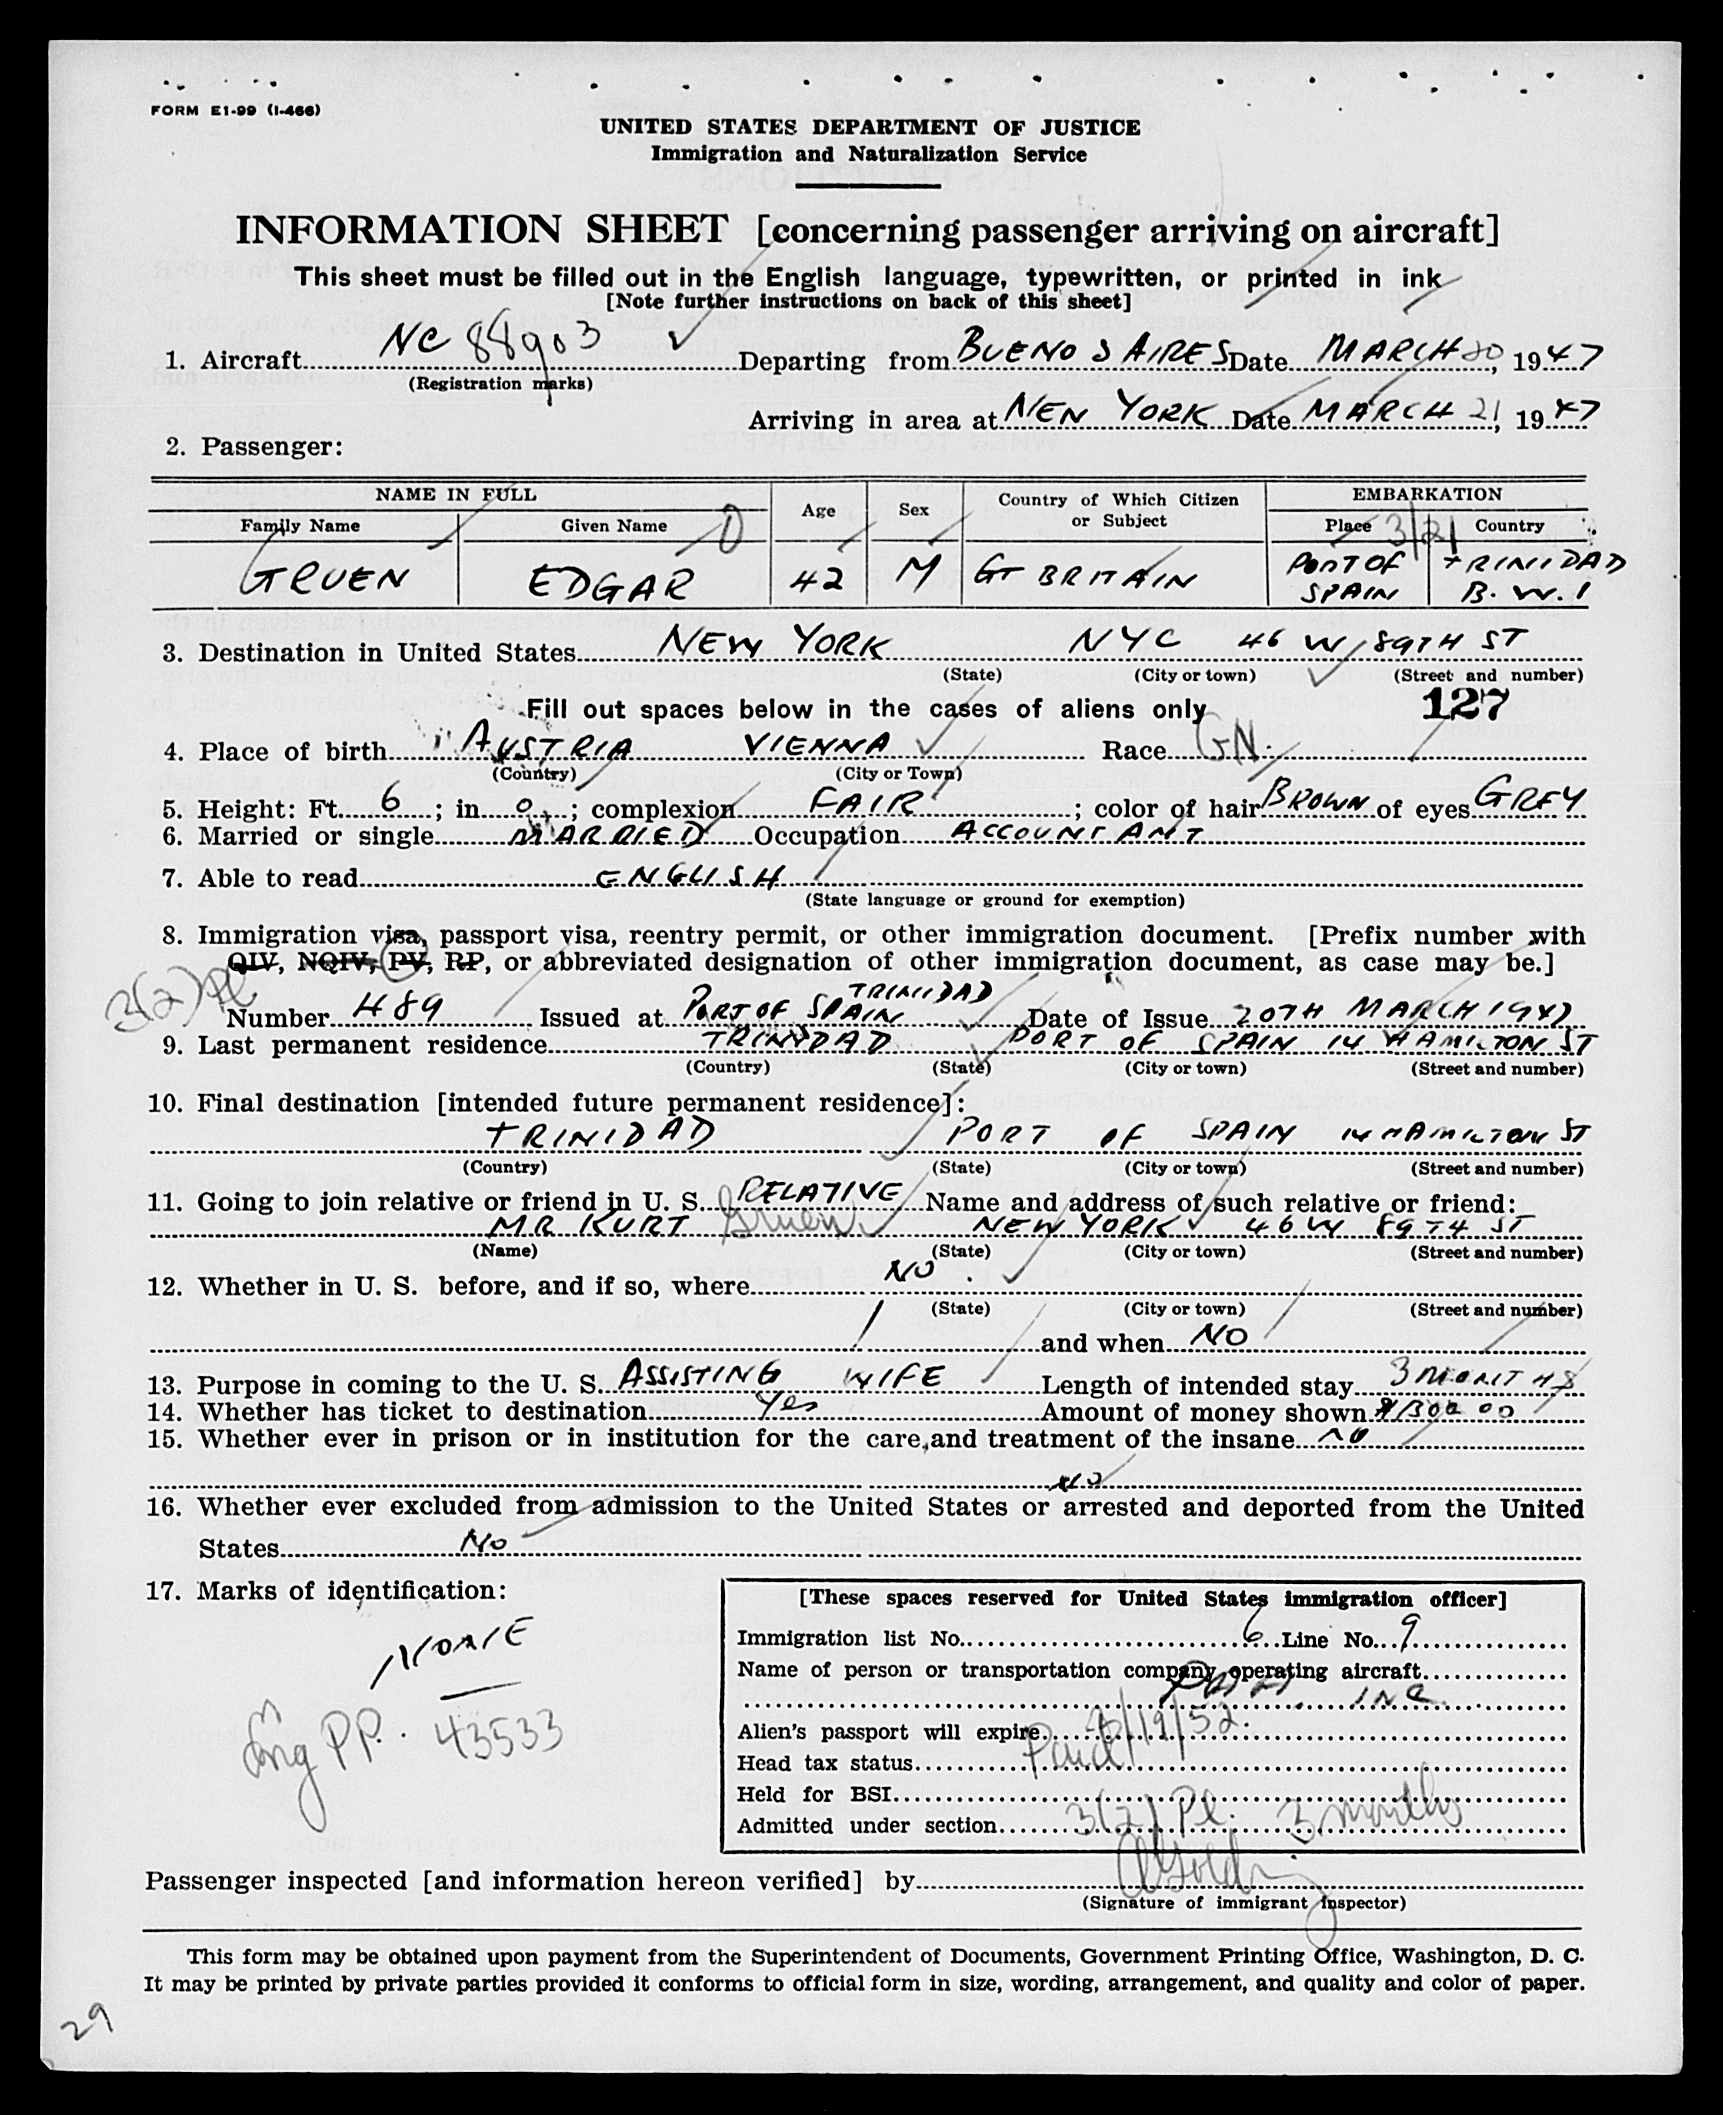 FORM E1-99 (I-466)
UNITED STATES DEPARTMENT OF JUSTICE
Immigration and Naturalization Service
INFORMATION SHEET [concerning passenger arriving on aircraft]
This sheet must be filled out in the English language, typewritten, or printed in ink
[Note further instructions on back of this sheet]
1. Aircraft NC 88903 Departing from BUENOS AIRES Date MARCH 20, 1947
(Registration marks)
Arriving in area at NEW YORK Date MARCH 21, 1947
2. Passenger:
NAME IN FULL Age Sex Country of Which Citizen or Subject EMBARKATION
Family Name Given Name Place Country
3/21
GRUEN EDGAR 42 M GT BRITAIN PORT OF SPAIN TRINIDAD B.W.I
3. Destination in United States NEW YORK NYC 46 W 89TH ST
(State) (City or town) (Street and number)
Fill out spaces below in the cases of aliens only 127
4. Place of birth AUSTRIA VIENNA Race GN
(Country) (City or Town)
5. Height: Ft. 6; in. 0; complexion FAIR; color of hair BROWN of eyes GREY
6. Married or single MARRIED Occupation ACCOUNTANT
7. Able to read ENGLISH
(State language or ground for exemption)
8. Immigration visa, passport visa, reentry permit, or other immigration document. [Prefix number with
QIV, NQIV, PV, RP, or abbreviated designation of other immigration document, as case may be.]
3(2) Pl
Number 489 Issued at PORT OF SPAIN TRINIDAD Date of Issue 20TH MARCH 1947
9. Last permanent residence TRINIDAD PORT OF SPAIN 14 HAMILTON ST
(Country) (State) (City or town) (Street and number)
10. Final destination [intended future permanent residence]:
TRINIDAD PORT OF SPAIN 14 HAMILTON ST
(Country) (State) (City or town) (Street and number)
11. Going to join relative or friend in U. S. RELATIVE Name and address of such relative or friend:
MR KURT Gruen NEW YORK 46 W 89TH ST
(Name) (State) (City or town) (Street and number)
12. Whether in U. S. before, and if so, where NO.
(State) (City or town) (Street and number)
and when NO
13. Purpose in coming to the U. S. ASSISTING WIFE Length of intended stay 3 MONTHS
14. Whether has ticket to destination Yes Amount of money shown $1300.00
15. Whether ever in prison or in institution for the care and treatment of the insane NO
NO
16. Whether ever excluded from admission to the United States or arrested and deported from the United
States No
17. Marks of identification:
NONE
Eng PP. 43533
[These spaces reserved for United States immigration officer]
Immigration list No. 6 Line No. 9
Name of person or transportation company operating aircraft
INC
Alien's passport will expire /19/52.
Head tax status Paid
Held for BSI
Admitted under section 3(2) Pl. 3 months
Passenger inspected [and information hereon verified] by
(Signature of immigrant inspector)
This form may be obtained upon payment from the Superintendent of Documents, Government Printing Office, Washington, D. C.
It may be printed by private parties provided it conforms to official form in size, wording, arrangement, and quality and color of paper.
29